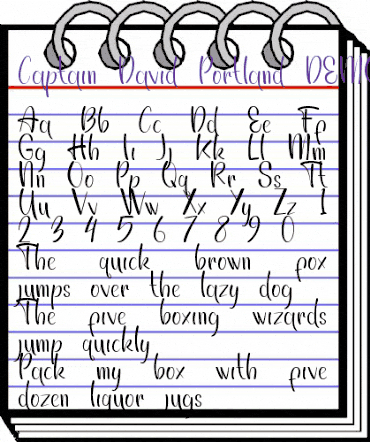 Captain David Portland DEMO
Aa Bb Cc Dd Ee Ff
Gg Hh Ii Jj Kk Ll Mm
Nn Oo Pp Qq Rr Ss Tt
Uu Vv Ww Xx Yy Zz 1
2 3 4 5 6 7 8 9 0
The quick brown fox
jumps over the lazy dog
The five boxing wizards
jump quickly
Pack my box with five
dozen liquor jugs